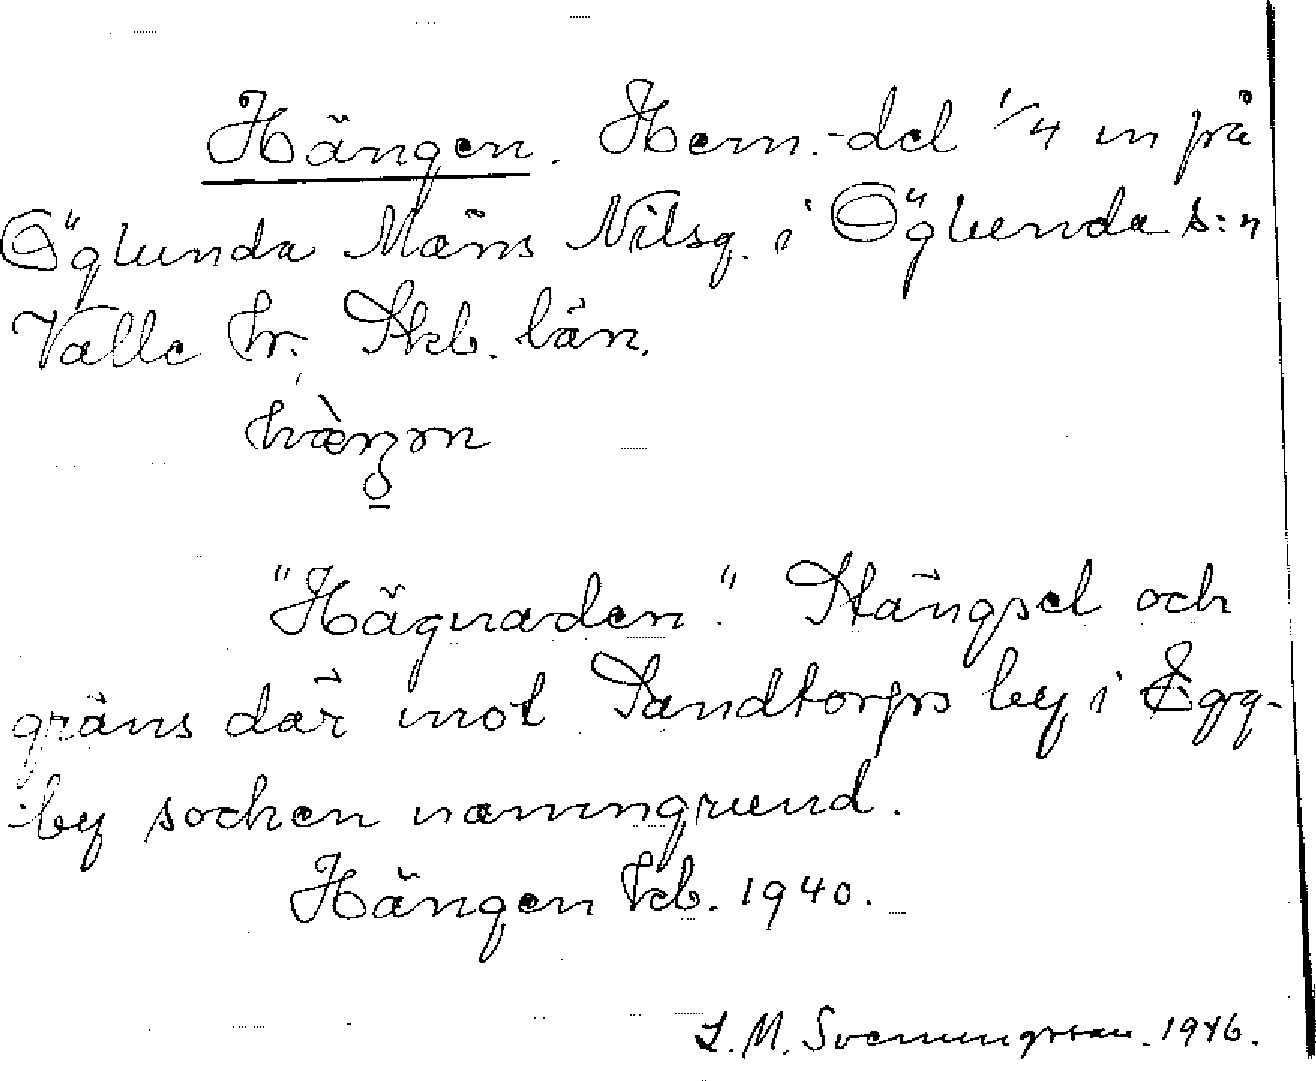 Hängen. Hem.-del 1/4 m på
Öglunda Måns Nilsg. i Öglunda s:n
Valle hr. Skb. län.
"Hägnaden". Stängsel och
gräns där mot Sandtorps by i Egg-
-by socken namngrund.
Hängen kb. 1940.
L. M. Svenungsson. 1946.